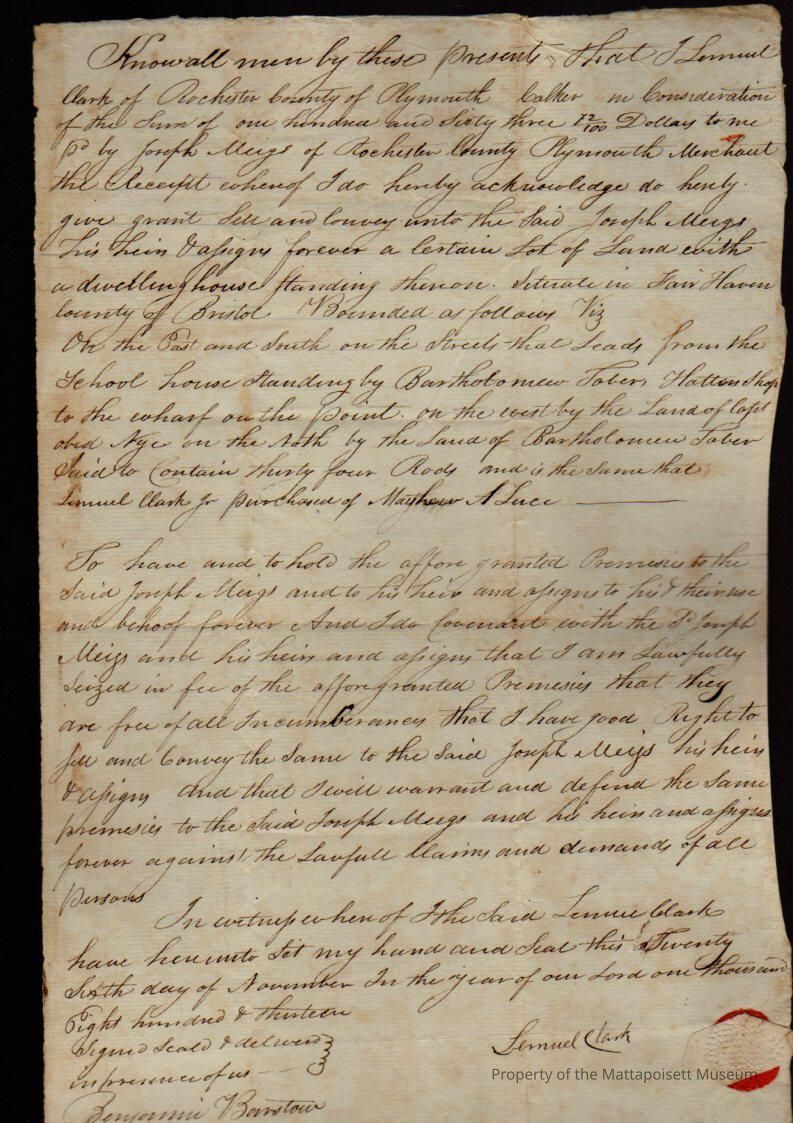 Know all men by these Presents, that I Lemuel
Clark of Rochester County of Plymouth Calker in Consideration
of the Sum of one hundred and Sixty three 72/100 Dollars to me
pd by Joseph Meigs of Rochester County Plymouth Merchant
the Receipt whereof I do hereby acknowledge do herby
give grant Sell and Convey unto the Said Joseph Meigs
his heirs & assigns forever a Certain Lot of Land with
a dwelling house standing thereon. Situate in Fair Haven
County of Bristol Bounded as follows Viz
On the East and South on the Streets that Leads from the
School house Standing by Bartholomew Tabers Hatters Shop
to the wharf on the point. on the west by the Land of Capt
obed Nye on the Noth by the Land of Bartholomew Taber
Said to Contain thirty four Rods and is the Same that
Lemuel Clark Jr purchased of Mayhew A Luce
To have and to hold the affore granted Premesies to the
Said Joseph Meigs and to his heirs and assigns to his & their use
and behoof forever And I do Covenant with the Sd Joseph
Meigs and his heirs and assigns that I am Lawfully
Seized in fee of the afforegranted Premesies that they
are free of all Incumberances that I have good Right to
sell and Convey the Same to the Said Joseph Meigs his heirs
& assigns and that I will warrant and defend the Same
premesies to the Said Joseph Meigs and his heirs and assigns
forever against the Lawfull Claims and demands of all
Persons
In witness whereof I the Said Lemuel Clark
have hereunto Set my hand and Seal this Twenty
Sixth day of November In the year of our Lord one thousand
Eight hundred & thirteen
Signed Seald & delivered
in presence of us
Lemuel Clark
Property of the Mattapoisett Museum
Benjamin Barstow